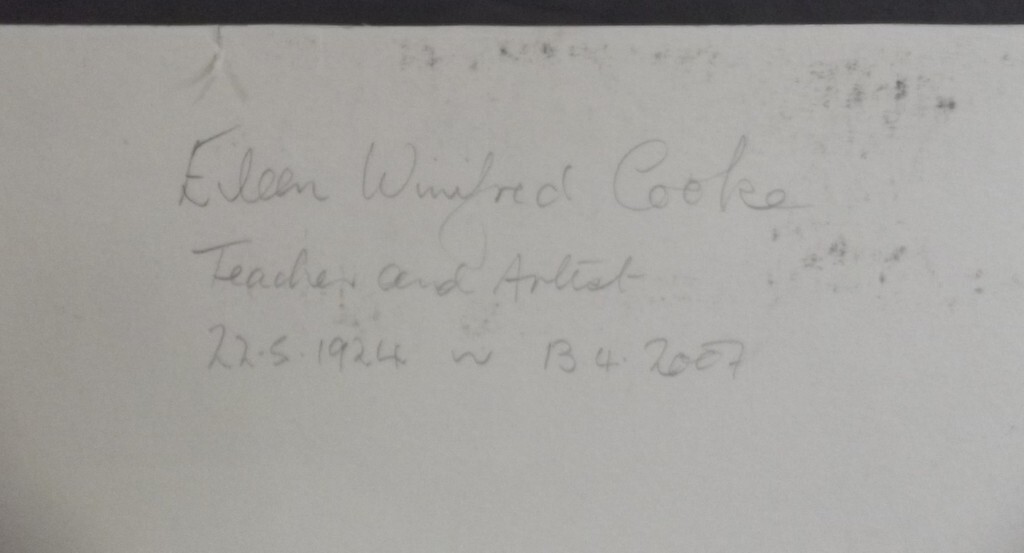 Eileen Winifred Cooke
Teacher and Artist
22.5.1924 ~ 13 4. 2007